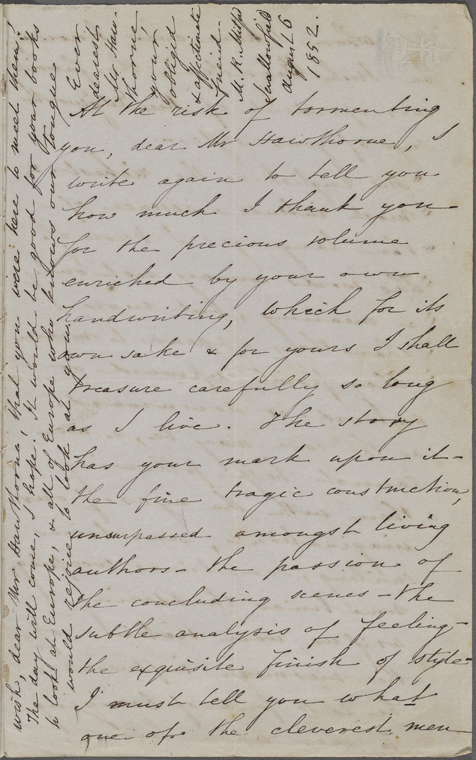 At the risk of tormenting
you, dear Mr Hawthorne, I
write again to tell you
how much I thank you
for the precious volume
enriched by your own
handwriting, which for its
own sake & for yours I shall
treasure carefully so long
as I live. The story
has your mark upon it -
the fine tragic construction,
unsurpassed amongst living
authors - the passion of
the concluding scenes - the
subtle analysis of feeling -
the exquisite finish of style -
I must tell you what
one of the cleverest men
wish, dear Mr Hawthorne, that you were here to meet them!
The day will come, I hope. It would be good for your books
to look at Europe, & all of Europe who knows our tongue
would rejoice to look at you.
Ever
dearest
Mr Haw-
thorne,
your
obliged
& affectionate
friend.
M. R. Mitford
Swallowfield
August 6
1852.